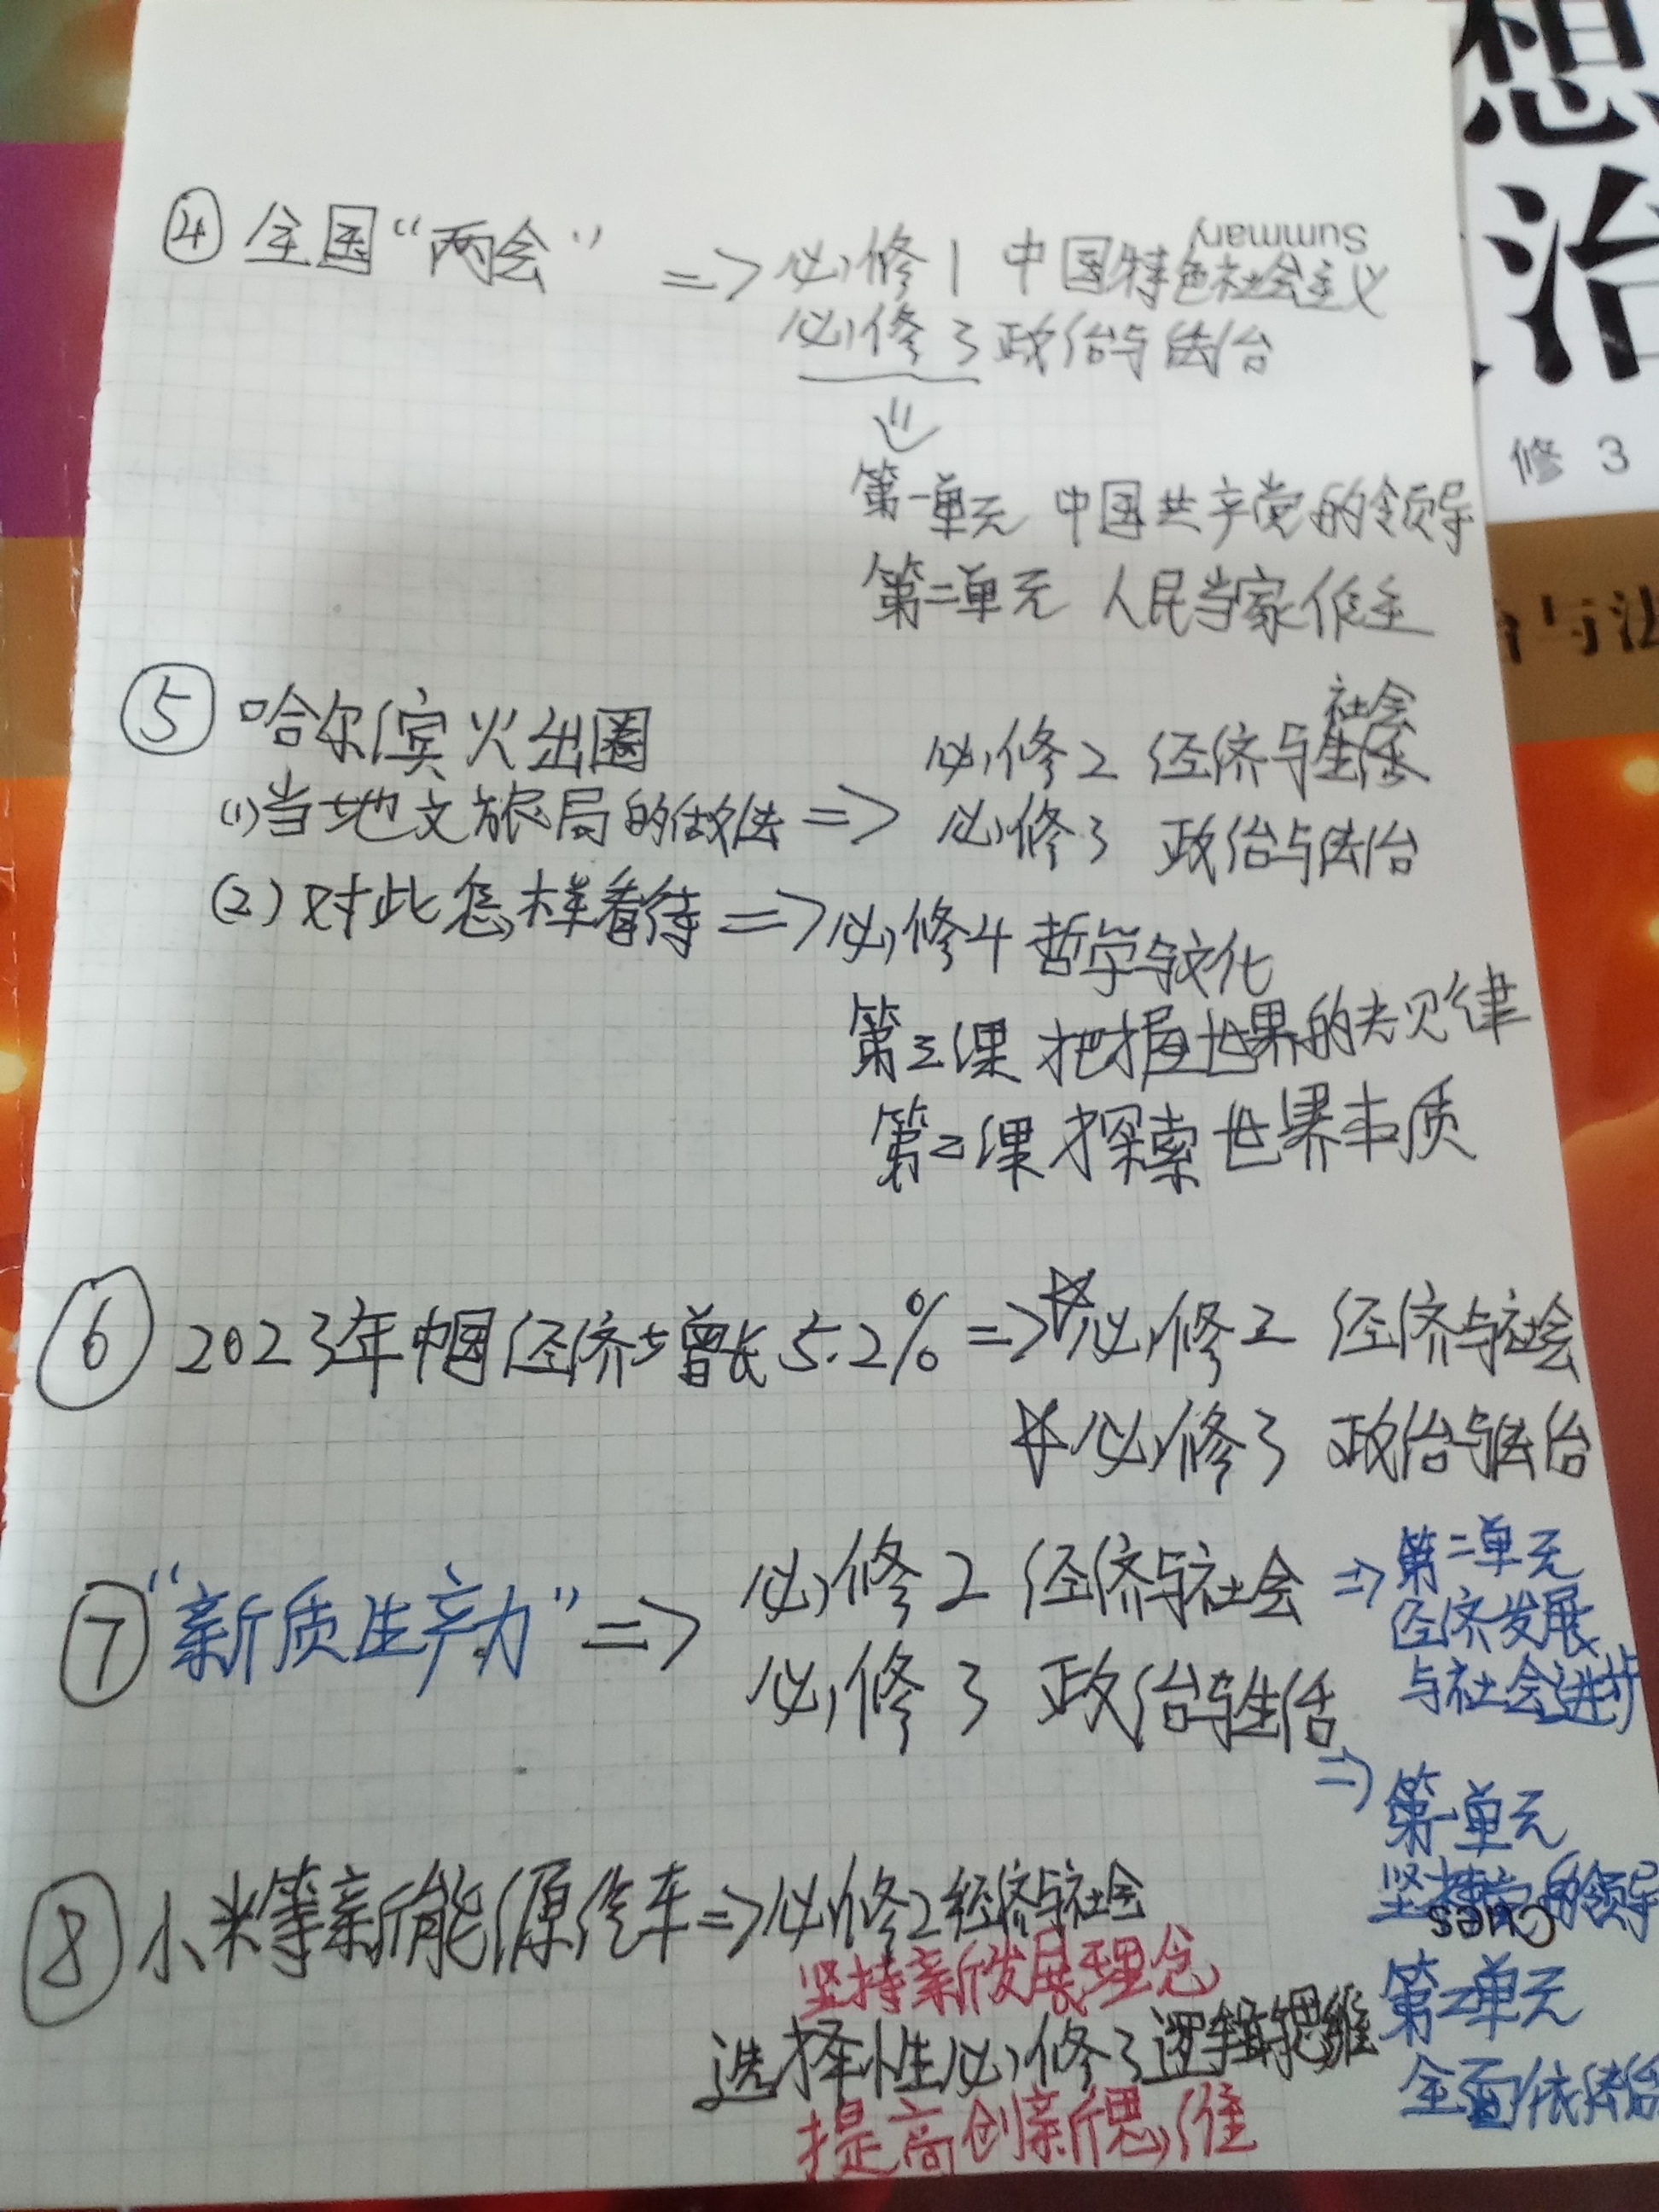 ④ 全国“两会” => 必修1 中国特色社会主义
Summary
必修3 政治与法治
第一单元 中国共产党的领导
第二单元 人民当家作主
⑤ 哈尔滨火出圈
社会
必修2 经济与
(1)当地文旅局的做法 => 必修3 政治与法治
(2)对此怎样看待 => 必修4 哲学与文化
第三课 把握世界的规律
第二课 探索世界本质
⑥ 2023年中国经济增长5.2% => ☆必修2 经济与社会
☆必修3 政治与法治
⑦ “新质生产力” => 必修2 经济与社会 => 第二单元
经济发展
与社会进步
必修3 政治与生活
=> 第一单元
坚持党的领导
Cues
第二单元
全面依法治
⑧ 小米等新能源汽车 => 必修2 经济与社会
坚持新发展理念
选择性必修3 逻辑思维
提高创新思维
想
治
修 3
治与法